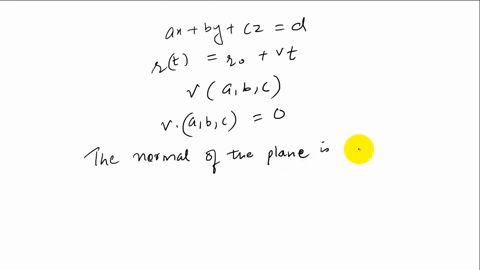 ax + by + cz = d
r(t) = r₀ + vt
v (a, b, c)
v. (a, b, c) = 0
The normal of the plane is